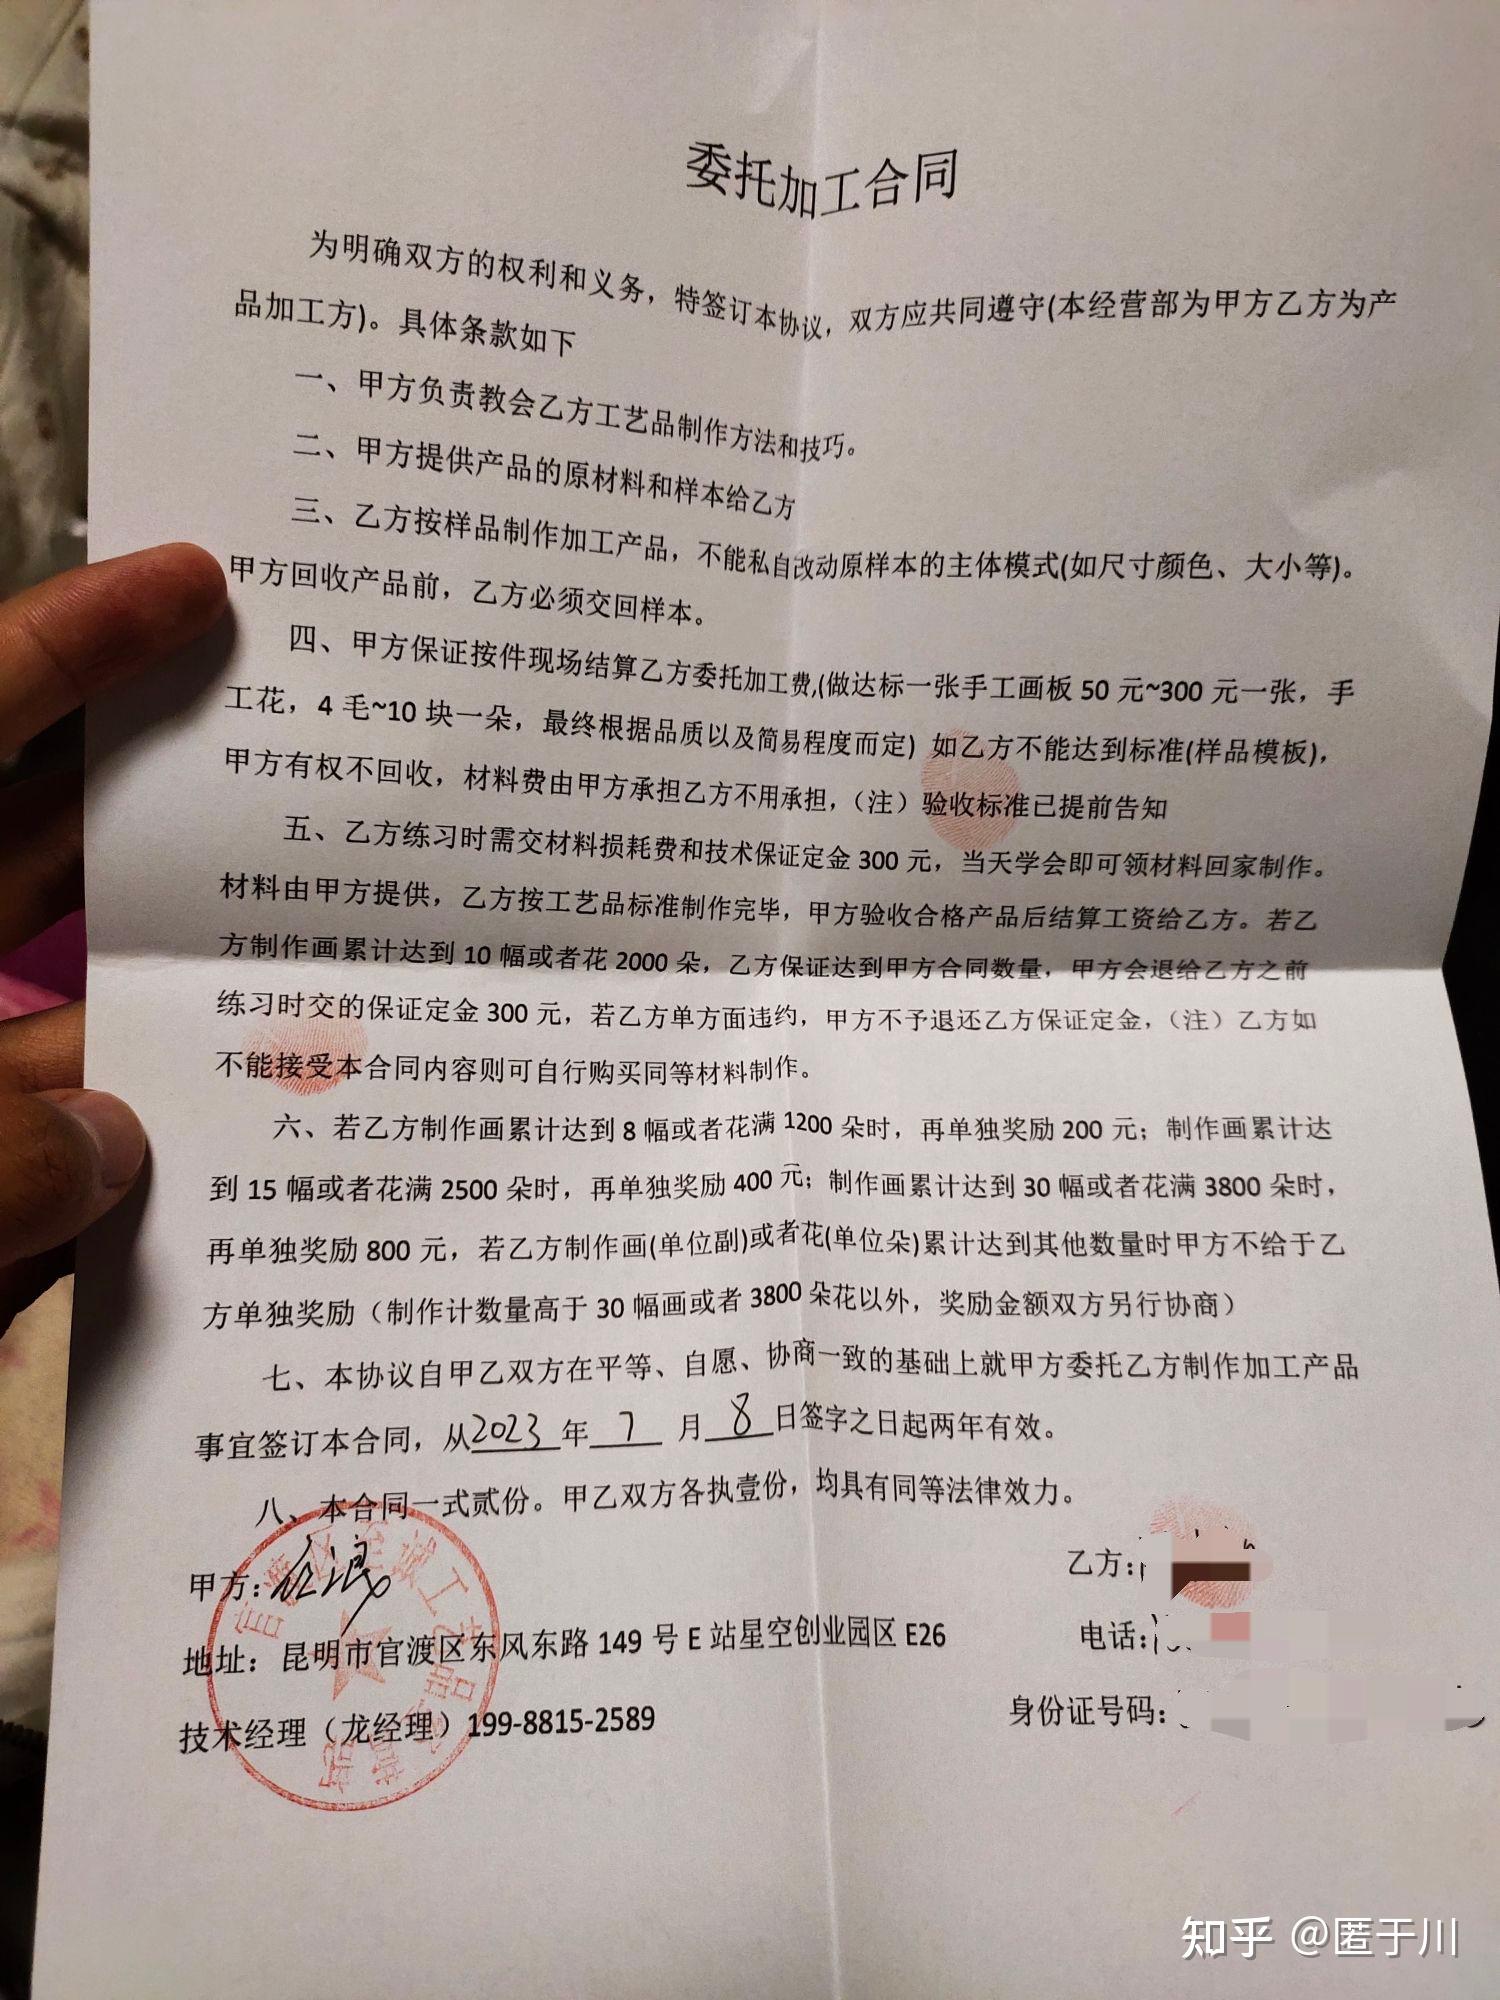 委托加工合同
为明确双方的权利和义务，特签订本协议，双方应共同遵守(本经营部为甲方乙方为产
品加工方)。具体条款如下
一、甲方负责教会乙方工艺品制作方法和技巧。
二、甲方提供产品的原材料和样本给乙方
三、乙方按样品制作加工产品，不能私自改动原样本的主体模式(如尺寸颜色、大小等)。
甲方回收产品前，乙方必须交回样本。
四、甲方保证按件现场结算乙方委托加工费,(做达标一张手工画板50元~300元一张，手
工花，4毛~10块一朵，最终根据品质以及简易程度而定）如乙方不能达到标准(样品模板)，
甲方有权不回收，材料费由甲方承担乙方不用承担，（注）验收标准已提前告知
五、乙方练习时需交材料损耗费和技术保证定金300元，当天学会即可领材料回家制作。
材料由甲方提供，乙方按工艺品标准制作完毕，甲方验收合格产品后结算工资给乙方。若乙
方制作画累计达到10幅或者花2000朵，乙方保证达到甲方合同数量，甲方会退给乙方之前
练习时交的保证定金300元，若乙方单方面违约，甲方不予退还乙方保证定金，（注）乙方如
不能接受本合同内容则可自行购买同等材料制作。
六、若乙方制作画累计达到8幅或者花满1200朵时，再单独奖励200元；制作画累计达
到15幅或者花满2500朵时，再单独奖励400元；制作画累计达到30幅或者花满3800朵时，
再单独奖励800元，若乙方制作画(单位副)或者花(单位朵)累计达到其他数量时甲方不给于乙
方单独奖励（制作计数量高于30幅画或者3800朵花以外，奖励金额双方另行协商）
七、本协议自甲乙双方在平等、自愿、协商一致的基础上就甲方委托乙方制作加工产品
事宜签订本合同，从2023年7月8日签字之日起两年有效。
八、本合同一式贰份。甲乙双方各执壹份，均具有同等法律效力。
甲方：
乙方：
地址：昆明市官渡区东风东路149号E站星空创业园区E26
电话：
技术经理（龙经理）199-8815-2589
身份证号码：
知乎 @匿于川